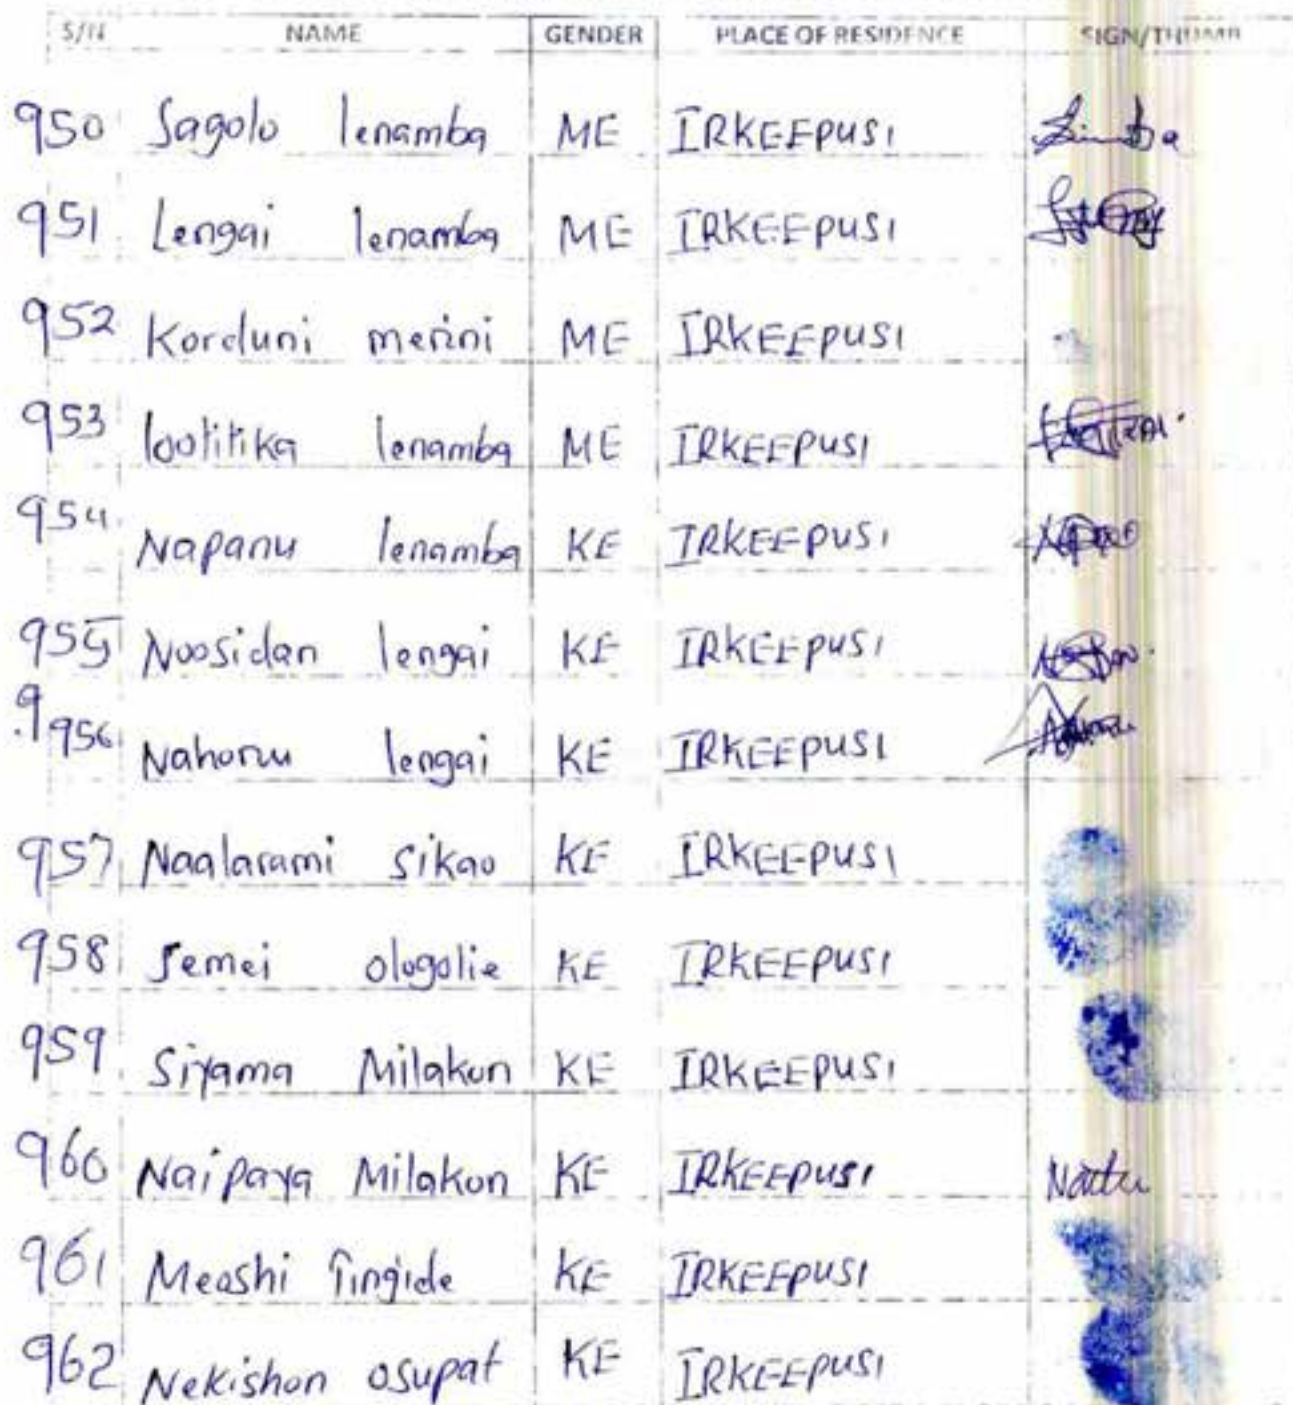 S/N NAME GENDER PLACE OF RESIDENCE SIGN/THUMB
950 Sagolo lenamba ME IRKEEPUSI
951 Lengai lenamba ME IRKEEPUSI
952 Korduni merini ME IRKEEPUSI
953 lootitika lenamba ME IRKEEPUSI
954 Napanu lenamba KE IRKEEPUSI
955 Noosidan lengai KE IRKEEPUSI
956 Nahoru lengai KE IRKEEPUSI
957 Naalarami sikao KE IRKEEPUSI
958 Semei ologolie KE IRKEEPUSI
959 Siyama Milakon KE IRKEEPUSI
960 Naipaya Milakon KE IRKEEPUSI
961 Meoshi Tingide KE IRKEEPUSI
962 Nekishon osupat KE IRKEEPUSI